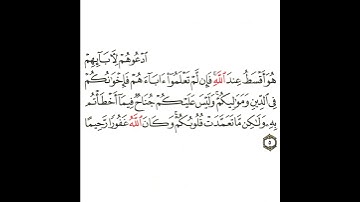 ٱدْعُوهُمْ لِأٓبَآئِهِمْ
هُوَ أَقْسَطُ عِندَ ٱللَّهِ ۚ فَإِن لَّمْ تَعْلَمُوٓا۟ ءَابَآءَهُمْ فَإِخْوَٰنُكُمْ
فِى ٱلدِّينِ وَمَوَٰلِيكُمْ ۚ وَلَيْسَ عَلَيْكُمْ جُنَاحٌ فِيمَآ أَخْطَأْتُم
بِهِۦ وَلَٰكِن مَّا تَعَمَّدَتْ قُلُوبُكُمْ ۚ وَكَانَ ٱللَّهُ غَفُورًا رَّحِيمًا ٥